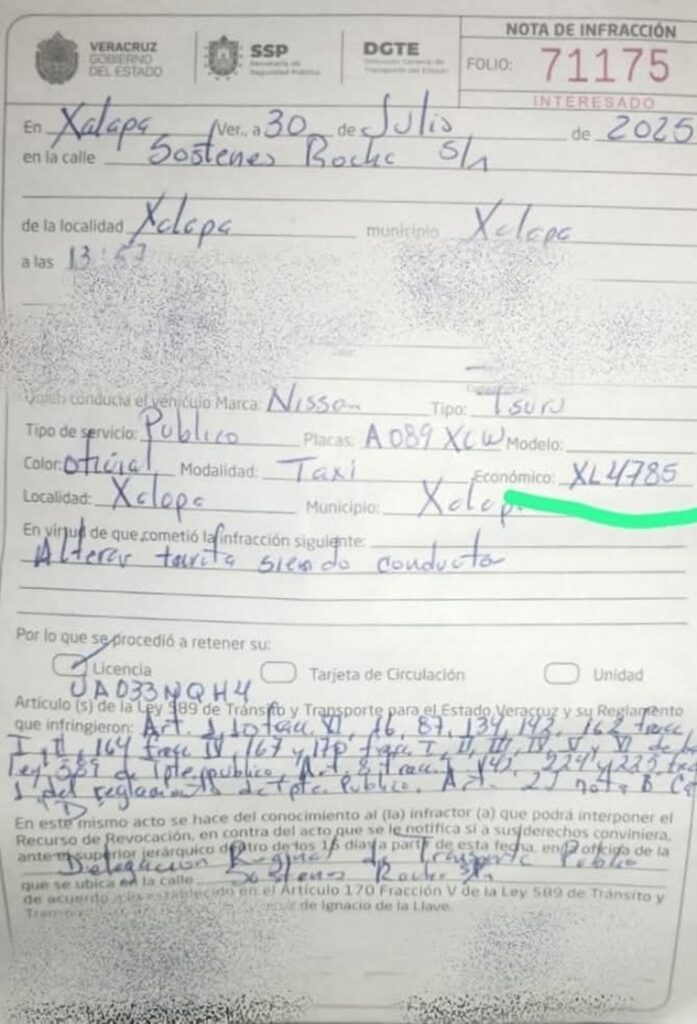 VERACRUZ
GOBIERNO
DEL ESTADO
SSP
Secretaría de
Seguridad Pública
DGTE
Dirección General de
Transporte del Estado
NOTA DE INFRACCIÓN
FOLIO: 71175
INTERESADO
En Xalapa Ver., a 30 de Julio de 2025
en la calle Sostenes Rocha S/n
de la localidad Xalapa municipio Xalapa
a las 13:57
conducía el vehículo Marca: Nissan Tipo: Tsuru
Tipo de servicio: Publico Placas: A089 XCW Modelo:
Color: oficial Modalidad: Taxi Económico: XL4785
Localidad: Xalapa Municipio: Xalap
En virtud de que cometió la infracción siguiente:
Alterar tarifa siendo conductor
Por lo que se procedió a retener su:
Licencia Tarjeta de Circulación Unidad
UA033NQH4
Artículo (s) de la Ley 589 de Tránsito y Transporte para el Estado Veracruz y su Reglamento
que infringieron: Art. 1, 10 fracc VI, 16, 87, 134, 143, 162 fracc
I, II, 164 fracc IV, 167 y 170 fracc I, II, III, IV, V y VI de la
Ley 589 de Tpte publico, Art. 8 fracc I 143, 224 y 225
del reglamento de Tpte Publico. Art. B
"D"
En este mismo acto se hace del conocimiento al (la) infractor (a) que podrá interponer el
Recurso de Revocación, en contra del acto que se le notifica si a sus derechos conviniera,
ante el superior jerárquico dentro de los 15 días a partir de esta fecha, en la oficina de la
Delegacion Regional de Transporte Publico
que se ubica en la calle Sostenes Rocha S/n
de acuerdo a lo establecido en el Artículo 170 Fracción V de la Ley 589 de Tránsito y
de Ignacio de la Llave.